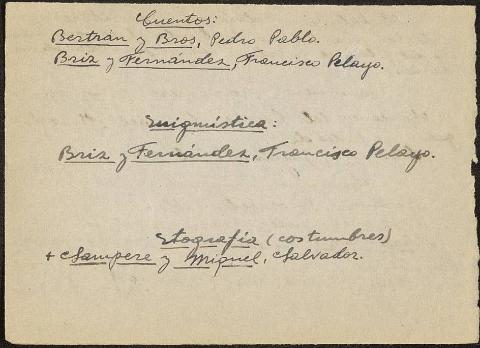 Cuentos:
Bertrán y Bros, Pedro Pablo.
Briz y Fernández, Francisco Pelayo.
Enigmística:
Briz y Fernández, Francisco Pelayo.
Etografía (costumbres)
+ Sampere y Miquel, Salvador.